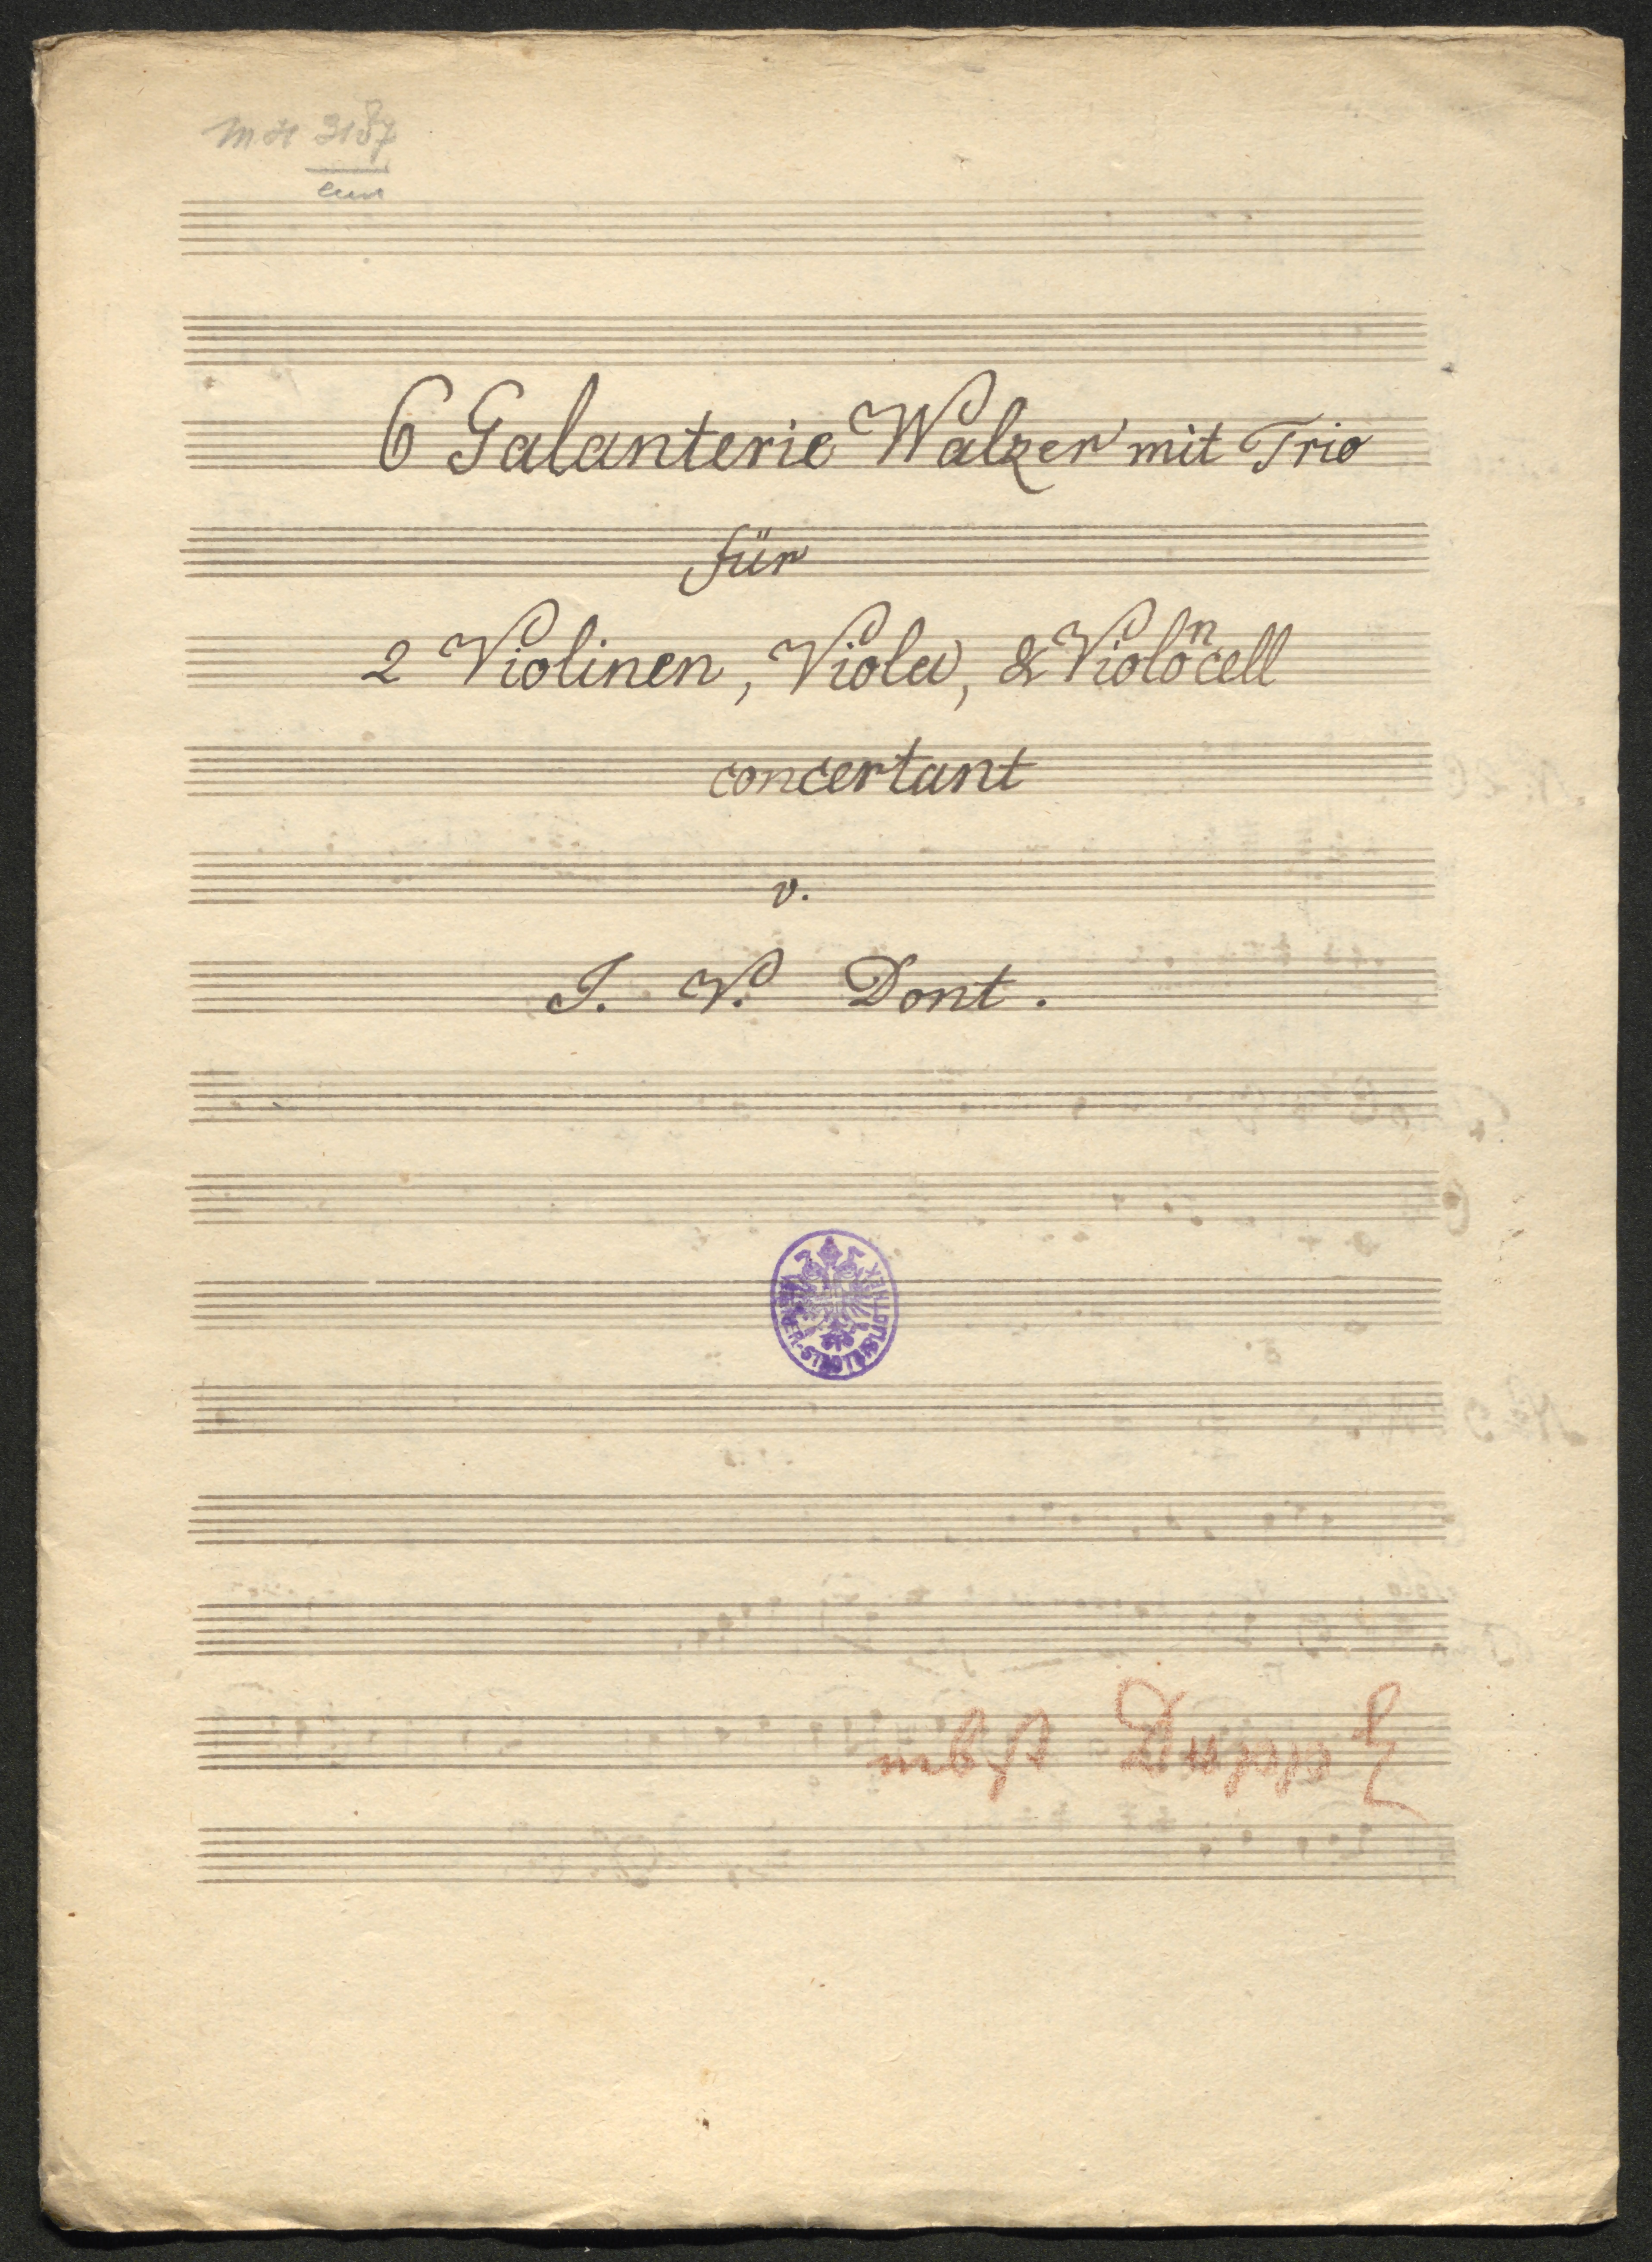 M.H 3187
6 Galanterie Walzer mit Trio
für
2 Violinen, Viola, & Violoncell
concertant
v.
J. V. Dont.
WIENER-STADTBIBLIOTHEK